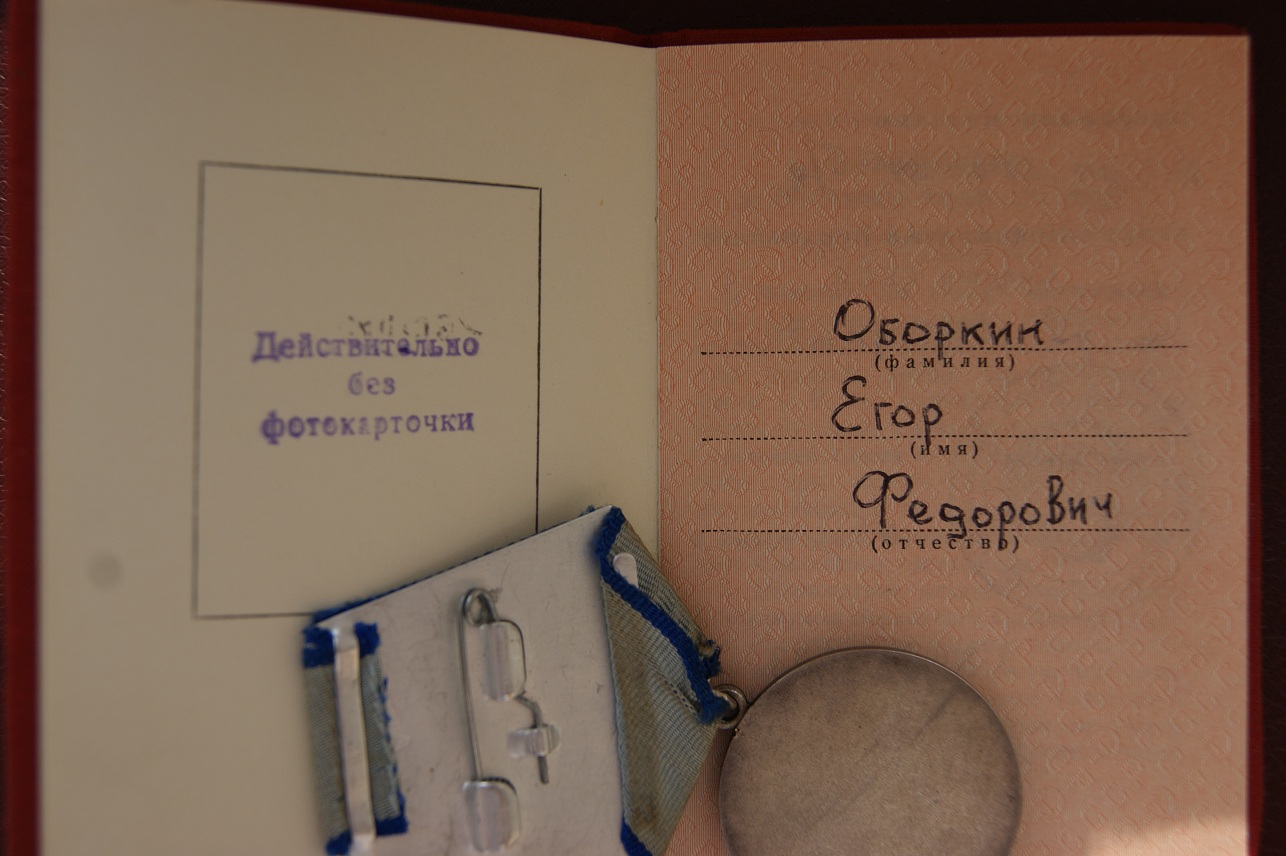 Действительно
без
фотокарточки
Оборкин
(фамилия)
Егор
(имя)
Федорович
(отчество)